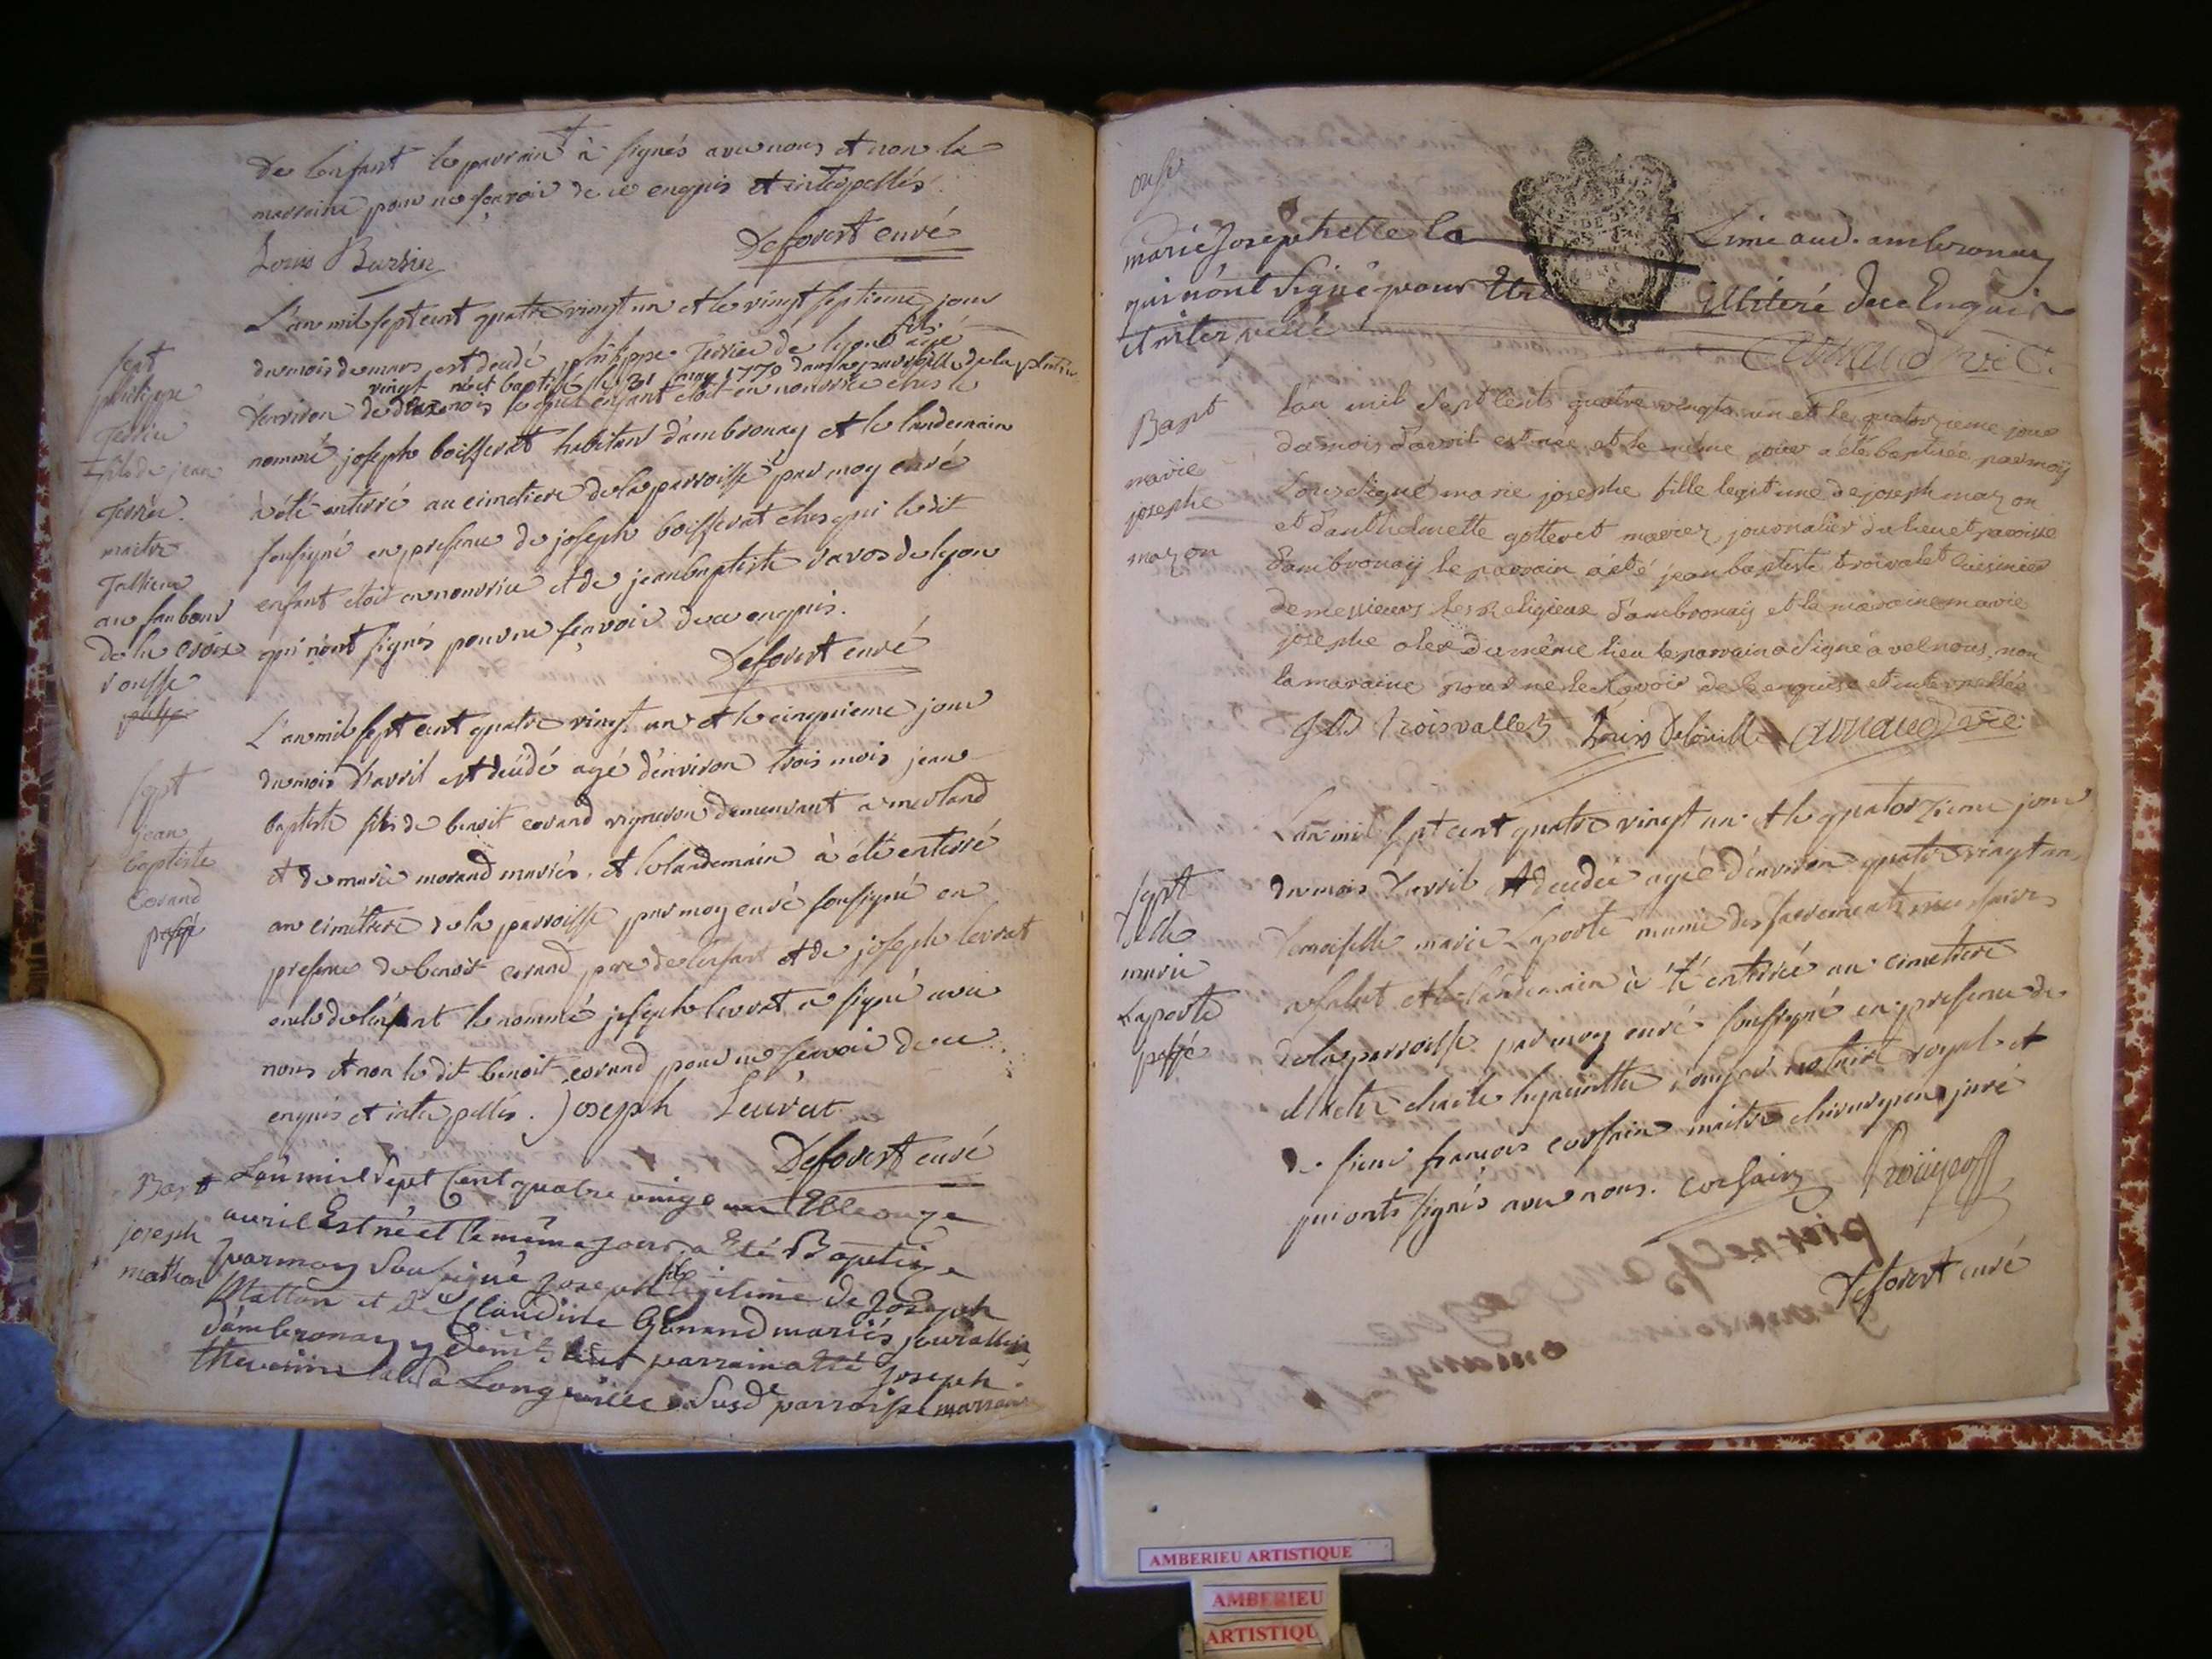 De lenfant le parrain à signés avec nous et non la
marraine pour ne sçavoir de ce enquis et interpellés
Louis
Deforest curé
sept
philippe
Terrier
fils de jean
Terrier
maitre
au faubour
de la croix
rousse
L'an mil sept cent quatre vingt un et le vingt septieme jour
du mois de mars est decedé philippe Terrier de lyon fils agé
né et baptisé le 31 may 1770 dans la paroisse de la
d'environ de mois lequel enfant etoit en nourrice ches le
nommé joseph boisserat habitant d'ambronay et le landemain
à été enterré au cimetiere de la parroisse par moy curé
soussigné en presence de joseph boisserat ches qui ledit
enfant etoit en nourrice et de jean baptiste ravos de lyon
qui n'ont signés pour ne sçavoir de ce enquis.
Deforest curé
sept
jean
baptiste
Corand
L'an mil sept cent quatre vingt un et le cinquieme jour
du mois d'avril est decedé agé d'environ trois mois jean
baptiste fils de benoit corand vigneron demeurant a merland
et de marie morand mariés. et le landemain à été enterré
au cimetiere de la parroisse par moy curé soussigné en
presence de benoit corand pere de lenfant et de joseph levrat
oncle de lenfant le nommé joseph levrat a signé avec
nous et non ledit benoit corand pour ne scavoir de ce
enquis et interpellés. Joseph Leuvrat
Deforest curé
Bapt
joseph
mathon
Lan mil sept Cent quatre vingt un et le onze
avril Est né et le même jour a Eté Baptize
par moy Soussigné joseph fils legitime de Joseph
Matton et de Claudine Genand mariés journallier
d'ambronay y demt. parrain a Eté Joseph
thevenin a Longeville Susde parroisse marraine
marie Josephette la Lime aud. ambronay
qui n'ont Signé pour Etre illiteré de ce Enquis
et interpellé
Arnaud vic.
Bapt
marie
josephe
mazon
Lan mil Sept Cent quatre vingts un et le quatorzieme jour
du mois d'avril est née et le même jour a été baptisée par moy
Soussigné marie josephe fille legitime de joseph mazon
et d'anthelmette gotteret mariez journalier du lieu et paroisse
d'ambronay le parrain a été jean baptiste troivalet Cuisinier
de messieurs les Religieux d'ambronay et la maraine marie
josephe du même lieu le parrain a Signé avec nous, non
la maraine pour ne le Savoir de Ce enquise et interpellée
J B Troisvallet Louis Arnaud vic
sept
Delle
marie
Laporte
L'an mil sept cent quatre vingt un et le quatorzieme jour
du mois d'avril est decedée agée d'environ quatre vingt un
demoiselle marie Laporte munie des sacrements necessaires
a salut et le landemain à été enterrée au cimetiere
de la parroisse par moy curé soussigné en presence de
charle hyacinthe notaire royal et
de sieur francois corsain maitre chirurgien juré
qui ont signés avec nous. corsain
Deforest curé
AMBERIEU ARTISTIQUE
AMBERIEU
ARTISTIQU